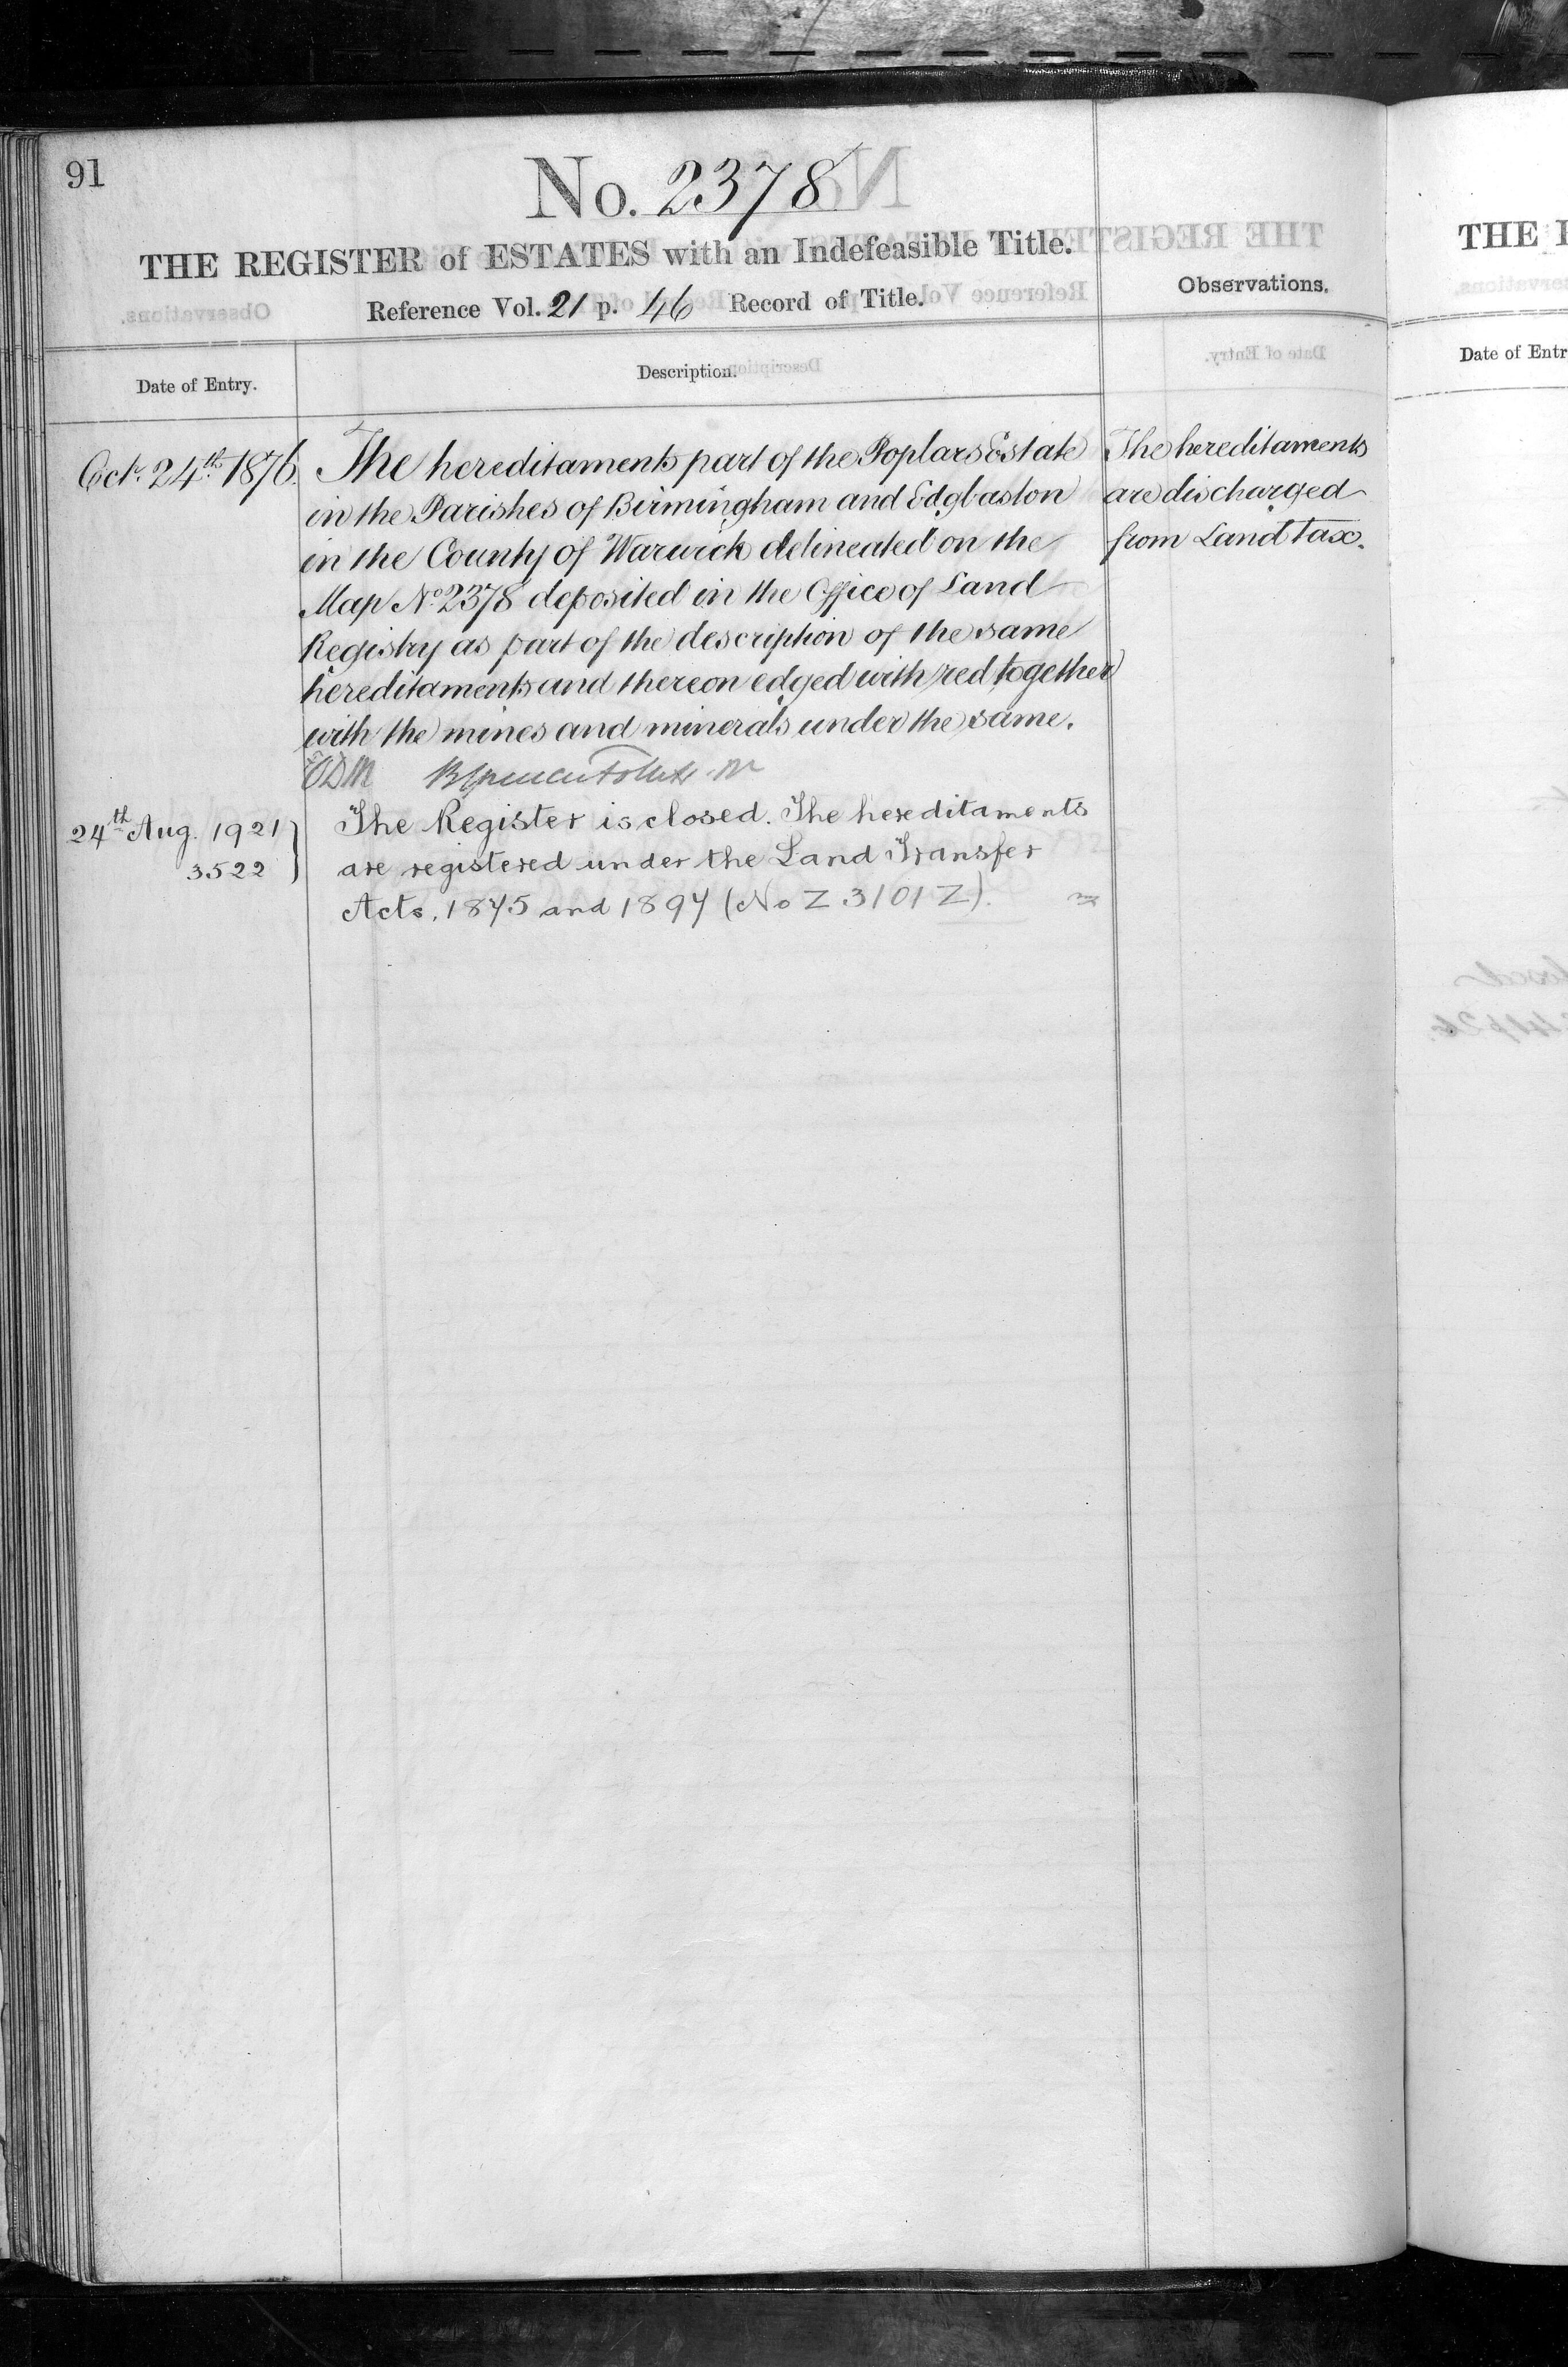 91
No. 2378
THE REGISTER of ESTATES with an Indefeasible Title.
Reference Vol. 21 p. 46 Record of Title.
Observations.
Date of Entry.
Description.
Octr. 24th 1876.
The hereditaments part of the Poplars Estate
in the Parishes of Birmingham and Edgbaston
in the County of Warwick delineated on the
Map No. 2378 deposited in the Office of Land
Registry as part of the description of the same
hereditaments and thereon edged with red together
with the mines and minerals under the same.
The hereditaments
are discharged
from Land tax.
24th Aug. 1921
3522
The Register is closed. The hereditaments
are registered under the Land Transfer
Acts, 1875 and 1897 (No Z 3101 Z).
THE
Date of Entr